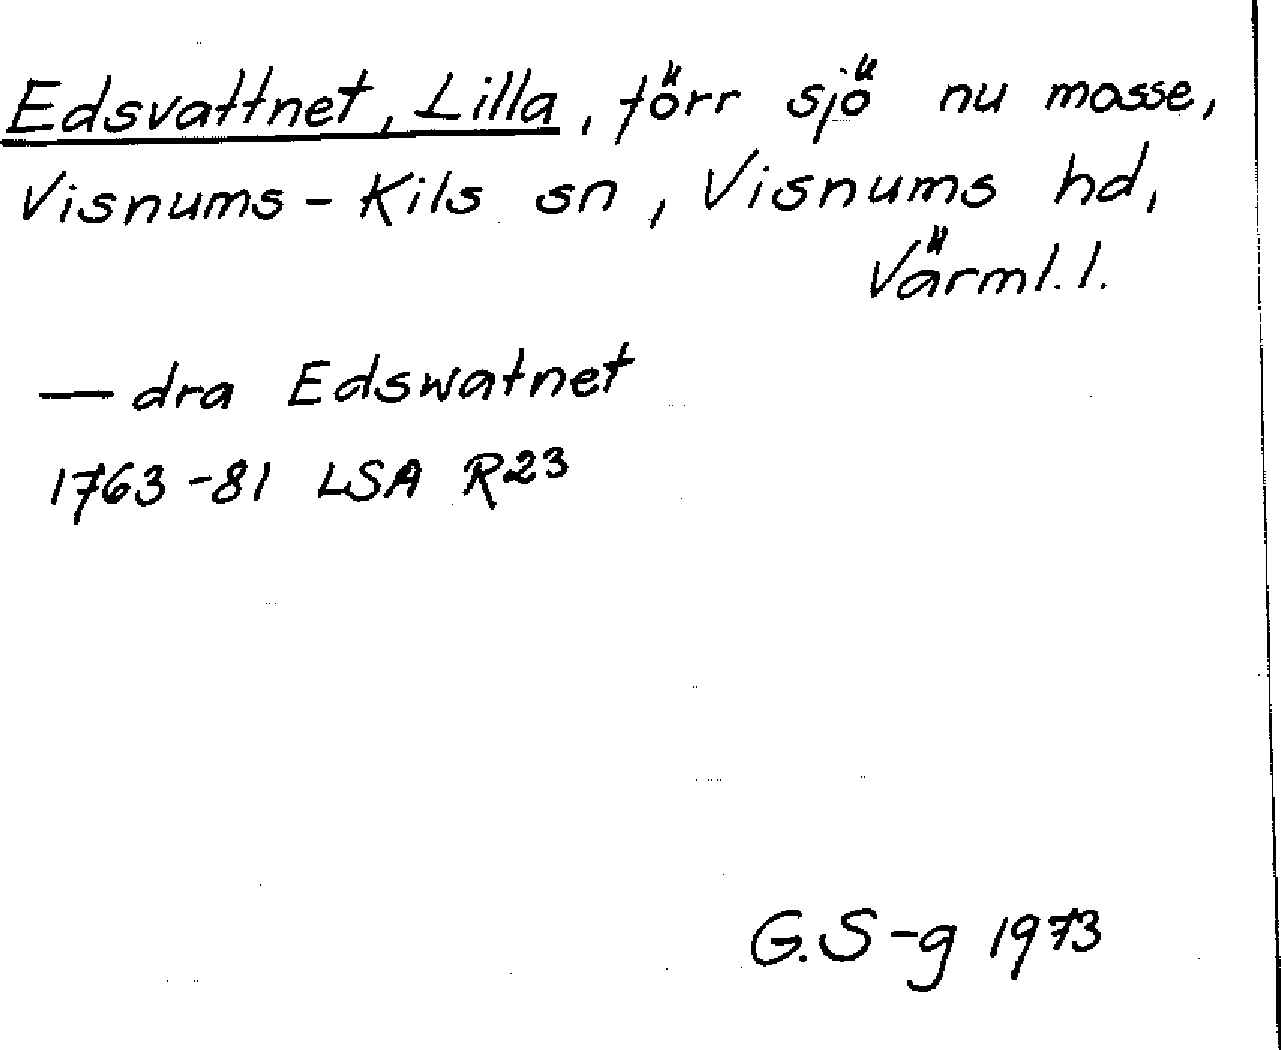 Edsvattnet, Lilla, förr sjö nu mosse,
Visnums-Kils sn, Visnums hd,
Värml. l.
— dra Edswatnet
1763-81 LSA R23
G.S-g 1973